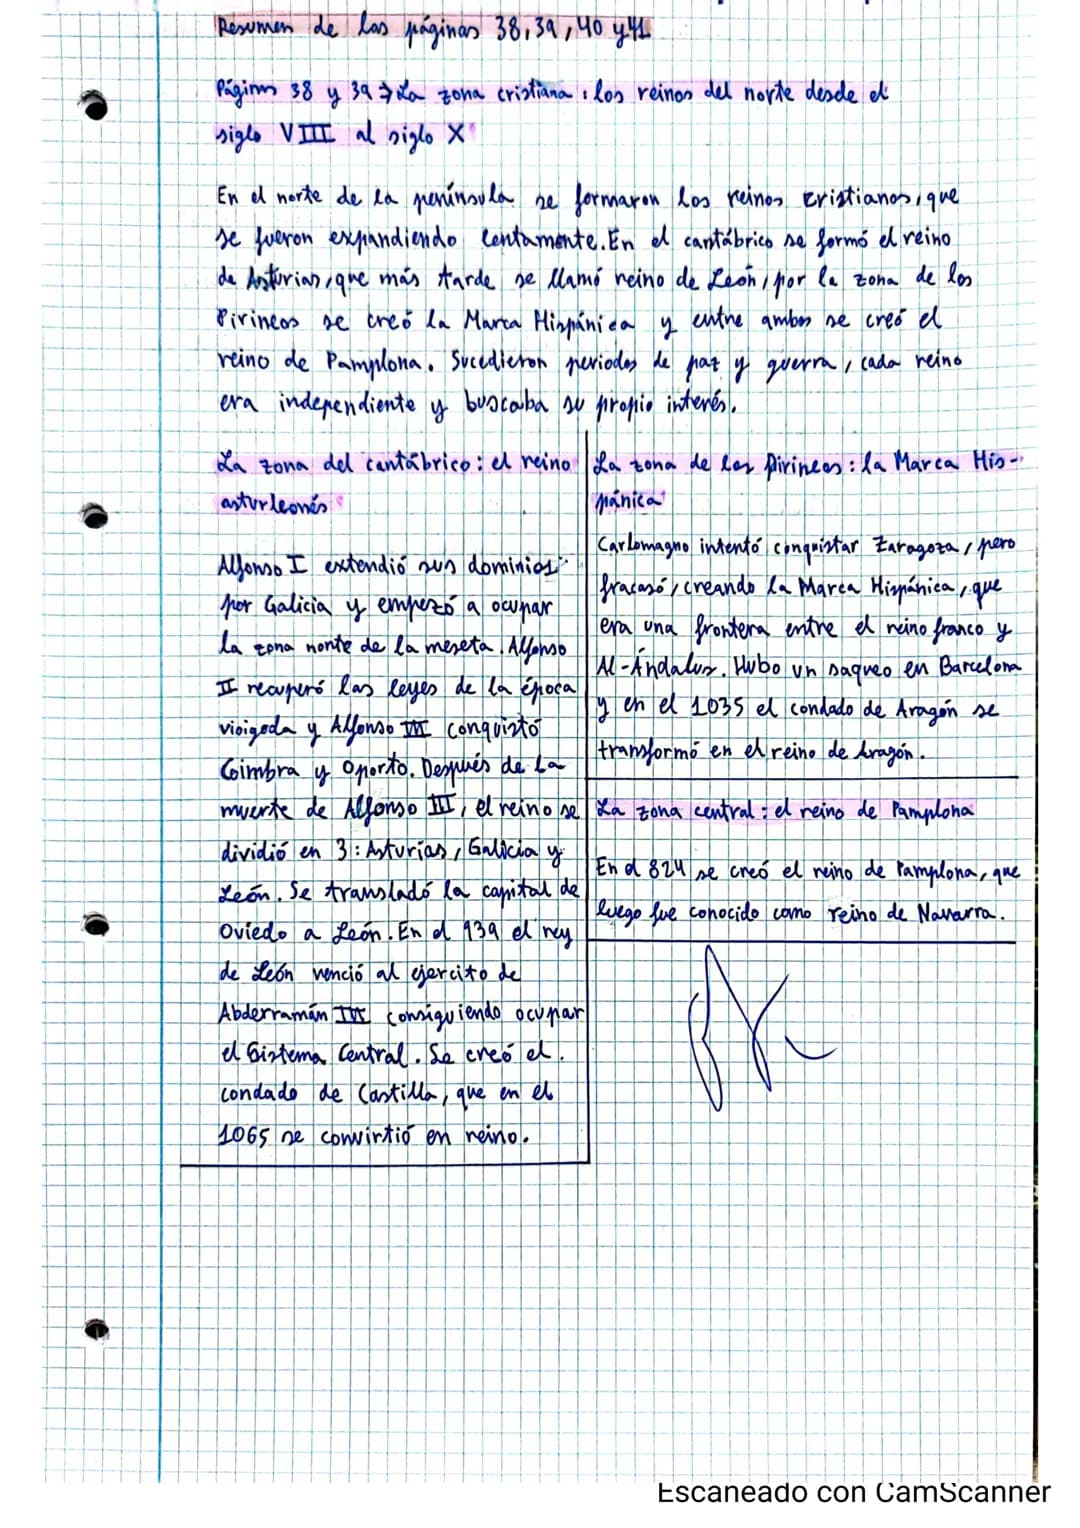 Resumen de las páginas 38, 39, 40 y 41
Páginas 38 y 39 → La zona cristiana: los reinos del norte desde el
siglo VIII al siglo X
En el norte de la península se formaron los reinos cristianos, que
se fueron expandiendo lentamente. En el cantábrico se formó el reino
de Asturias, que más tarde se llamó reino de León, por la zona de los
Pirineos se creó la Marca Hispánica y entre ambos se creó el
reino de Pamplona. Sucedieron periodos de paz y guerra, cada reino
era independiente y buscaba su propio interés.
La zona del cantábrico: el reino
asturleonés
Alfonso I extendió sus dominios
por Galicia y empezó a ocupar
la zona norte de la meseta. Alfonso
II recuperó las leyes de la época
visigoda y Alfonso III conquistó
Coimbra y Oporto. Después de la
muerte de Alfonso III, el reino se
dividió en 3: Asturias, Galicia y
León. Se transladó la capital de
Oviedo a León. En el 939 el rey
de León venció al ejercito de
Abderramán III consiguiendo ocupar
el Sistema Central. Se creó el
condado de Castilla, que en el
1065 se convirtió en reino.
La zona de los Pirineos: la Marca His-
pánica
Carlomagno intentó conquistar Zaragoza, pero
fracasó, creando la Marca Hispánica, que
era una frontera entre el reino franco y
Al-Ándalus. Hubo un saqueo en Barcelona
y en el 1035 el condado de Aragón se
transformó en el reino de Aragón.
La zona central: el reino de Pamplona
En el 824 se creó el reino de Pamplona, que
luego fue conocido como reino de Navarra.
Escaneado con CamScanner